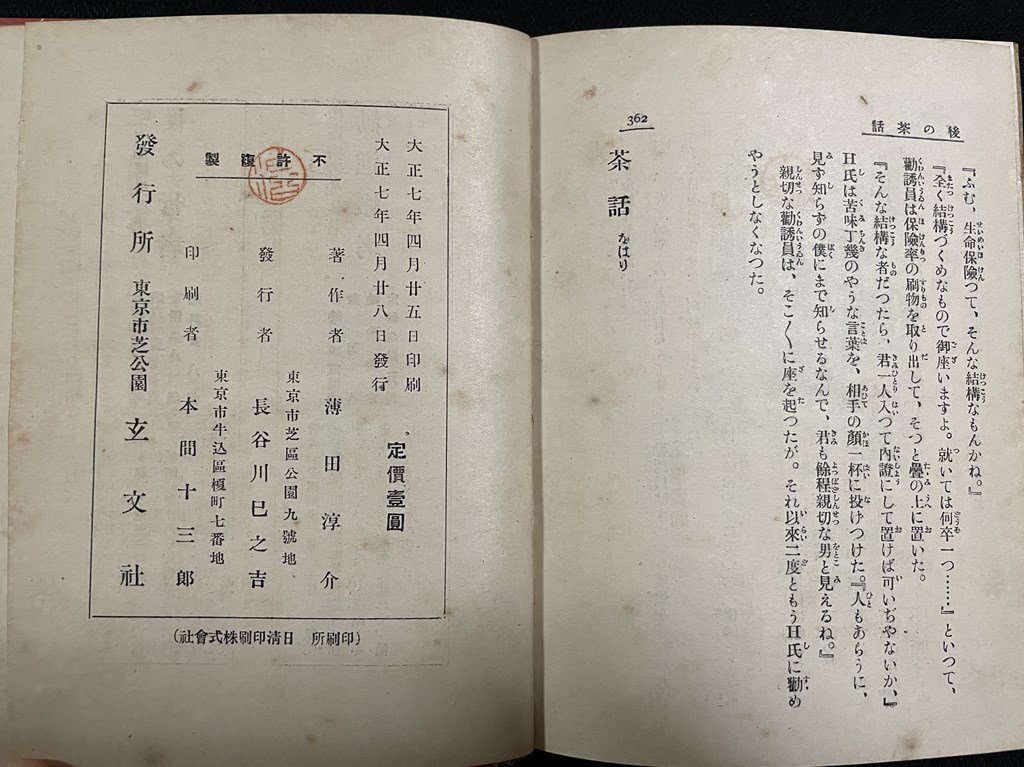 後の茶話
『ふむ、生命保險つて、そんな結構なもんかね。』
『全く結構づくめなもので御座いますよ。就いては何卒一つ……』といつて、
勸誘員は保險率の刷物を取り出して、そつと疊の上に置いた。
『そんな結構な者だつたら、君一人入つて內證にして置けば可いぢやないか、』
H氏は苦味丁幾のやうな言葉を、相手の顏一杯に投げつけた。『人もあらうに、
見ず知らずの僕にまで知らせるなんて、君も餘程親切な男と見えるね。』
親切な勸誘員は、そこ〳〵に座を起つたが。それ以來二度ともうH氏に勸め
やうとしなくなつた。
茶話 をはり
362
大正七年四月廿五日印刷
大正七年四月廿八日發行
定價壹圓
不許複製
著作者 薄田淳介
東京市芝區公園九號地
發行者 長谷川巳之吉
東京市牛込區榎町七番地
印刷者 本間十三郎
發行所 東京市芝公園 玄文社
(印刷所 日淸印刷株式會社)